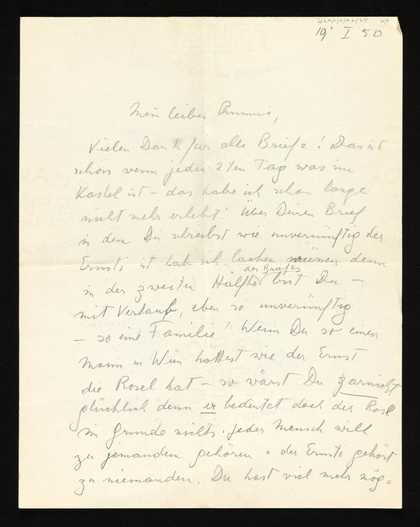 19 I 50
Mein lieber
Vielen Dank für alle Briefe! Das ist
schön wenn jeden 2ten Tag was im
Kastel ist – das habe ich schon lange
nicht mehr erlebt! Über Deinen Brief
in dem Du schreibst wie unvernünftig der
Ernst ist hab ich lachen müssen denn
in der zweiten Hälfte des Briefes bist Du –
mit Verlaub, eben so unvernünftig
– so eine Familie! Wenn Du so einen
Mann in Wien hättest wie der Ernst
die Rosel hat – so wärst Du garnicht
glücklich denn er bedeutet doch der Rosel
im Grunde nichts. Jeder Mensch will
zu jemandem gehören & der Ernst gehört
zu niemandem. Du hast viel mehr mög-